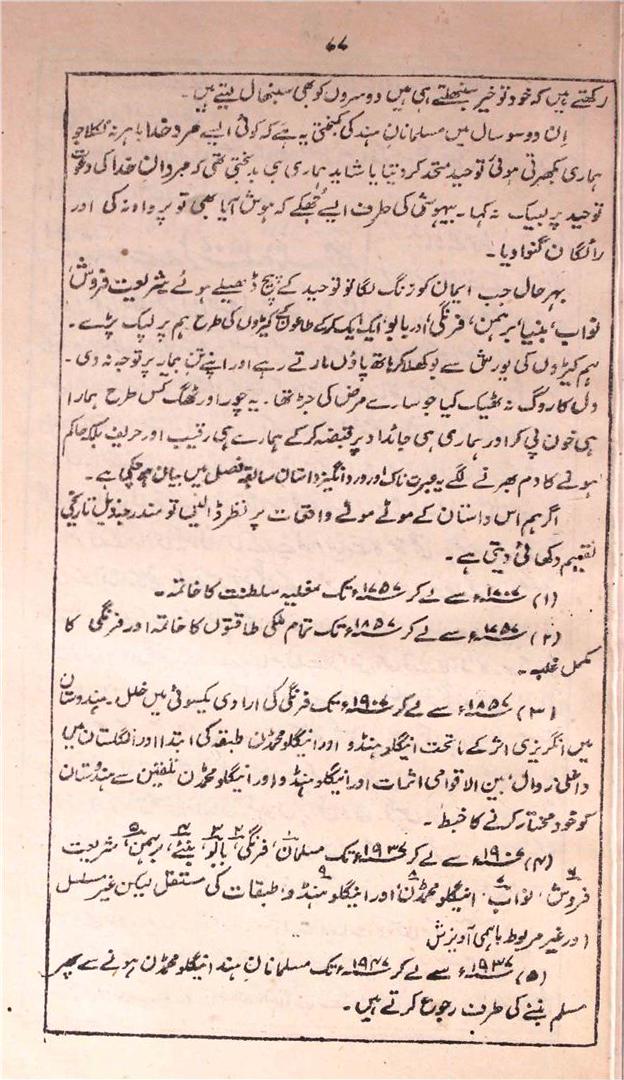 ۶۷
رکھتے ہیں کہ خود تو خیر سنبھلتے ہی ہیں دوسروں کو بھی سنبھال لیتے ہیں۔
اِن دو سو سال میں مسلمانانِ ہند کی کمبختی یہ ہے کہ کوئی ایسے مردِ خدا باہر نہ نکلا جو
ہماری بکھرتی ہوئی توحید متحد کر دیتا یا شاید ہماری ہی بدبختی تھی کہ مردانِ خدا کی دعوت
توحید پر لبیک نہ کہا۔ بیہوشی کی طرف ایسے جُھکے کہ ہوش آیا بھی تو پرواہ نہ کی اور
رائگان گنوا دیا۔
بہر حال جب ایمان کو زنگ لگا تو توحید کے پیچ ڈھیلے ہوئے شریعت فروش
نواب، بنیا، برہمن، فرنگی، اور بابو، ایک ایک کر کے طاعون کے کیڑوں کی طرح ہم پر لپک پڑے۔
ہم کیڑوں کی یورش سے بوکھلا کر ہاتھ پاؤں مارتے رہے اور اپنے تنِ بیمار پر توجہ نہ دی۔
دل کا روگ نہ ٹھیک کیا جو سارے مرض کی جڑ تھا۔ یہ چور اور ٹھگ کس طرح ہمارا
ہی خون پی کر اور ہماری ہی جائداد پر قبضہ کر کے ہمارے ہی رقیب اور حریف بلکہ حاکم
ہونے کا دم بھرنے لگے یہ عبرت ناک اور درد انگیز داستان سابقہ فصل میں بیان ہو چکی ہے۔
اگر ہم اس داستان کے موٹے موٹے واقعات پر نظر ڈالیں تو مندرجہ ذیل تاریخی
تقسیم دکھائی دیتی ہے۔
(۱) ۱۷۰۷ء سے لے کر ۱۷۵۷ء تک مغلیہ سلطنت کا خاتمہ۔
(۲) ۱۷۵۷ء سے لے کر ۱۸۵۷ء تک تمام ملکی طاقتوں کا خاتمہ اور فرنگی کا
مکمل غلبہ۔
(۳) ۱۸۵۷ء سے لے کر ۱۹۰۷ء تک فرنگی کی ارادی یکسوئی میں خلل۔ ہندوستان
میں انگریزی اثر کے ماتحت انیگلو ہنڈو اور انیگلو محمڈن طبقہ کی ابتدا اور انگلستان میں
داخلی زوال، بین الاقوامی اثرات اور انیگلو ہنڈو اور انیگلو محمڈن تلقین سے ہندوستان
کو خود مختار کرنے کا خبط۔
(۴) ۱۹۰۷ء سے لے کر ۱۹۳۷ء تک مسلمان۱، فرنگی۲، بابو۳، بنیے۴، برہمن۵، شریعت
فروش۶، نواب۷، انیگلو محمڈن۸، اور انیگلو ہنڈو۹ طبقات کی مستقل لیکن غیر مسلسل
اور غیر مربوط باہمی آویزش
(۵) ۱۹۳۷ء سے لے کر ۱۹۴۷ء تک مسلمانانِ ہند انیگلو محمڈن ہونے سے پھر
مسلم بننے کی طرف رجوع کرتے ہیں۔